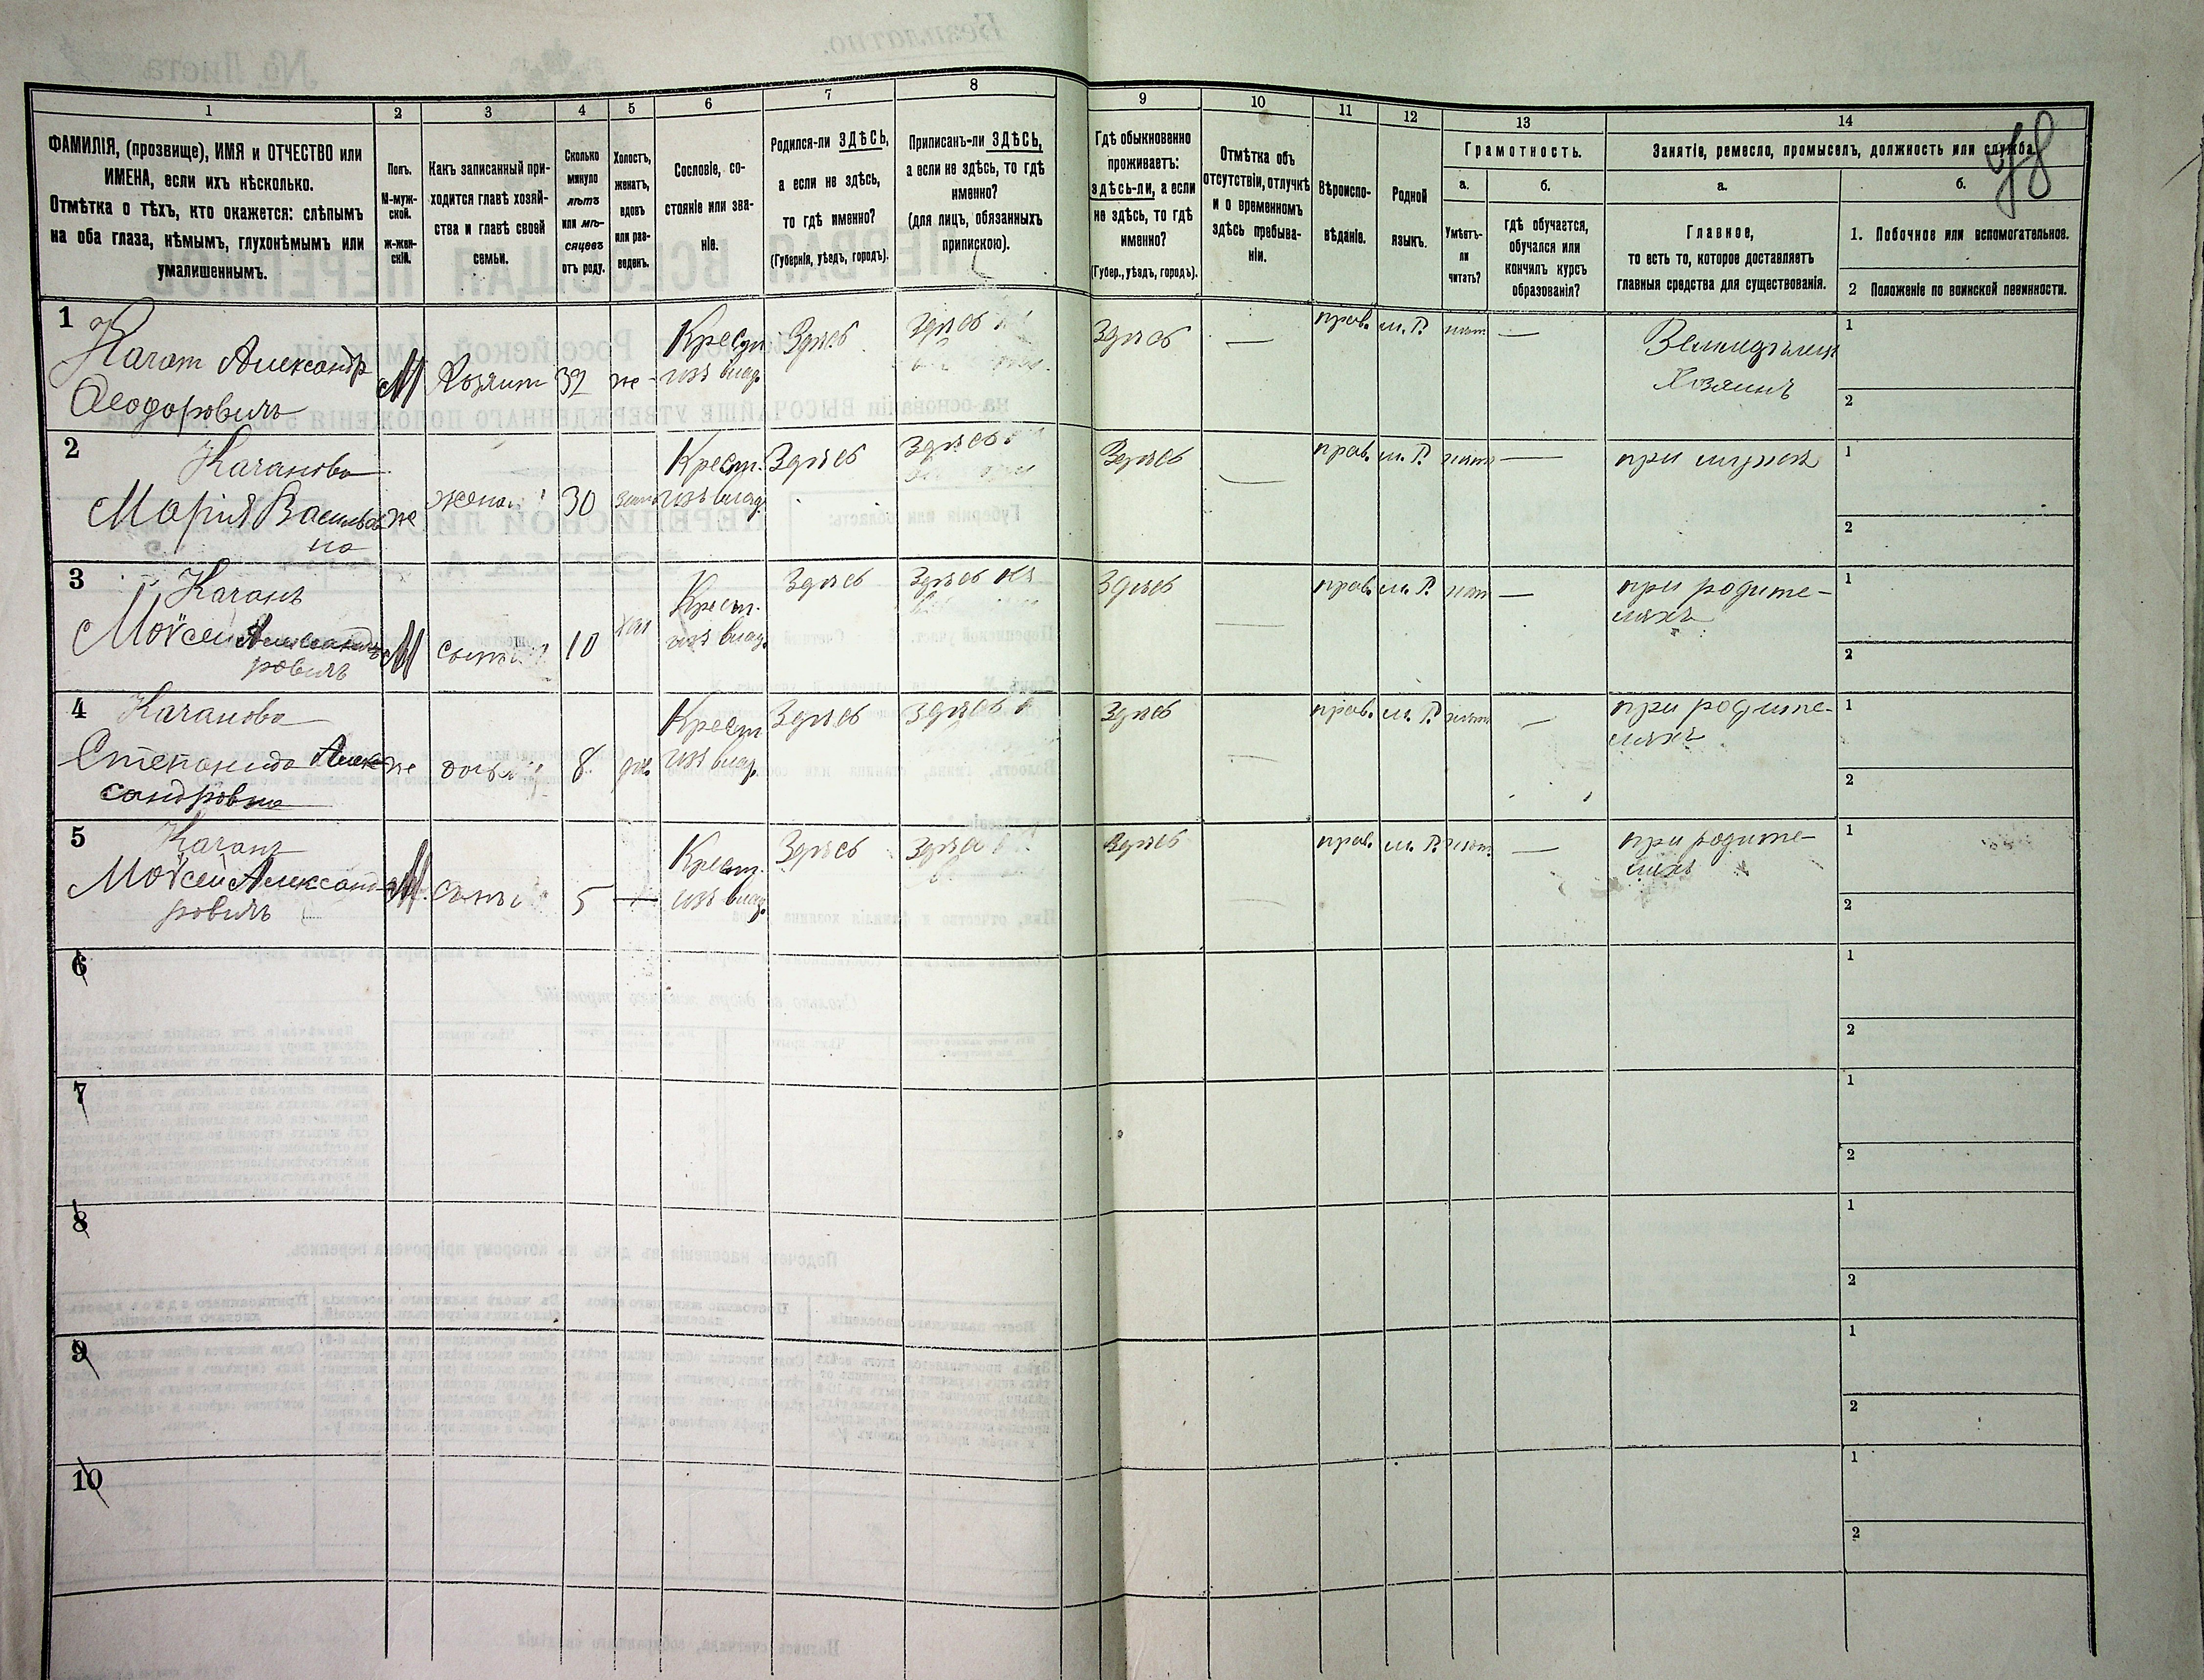 78
1
2
3
4
5
6
7
8
9
10
11
12
13
14
ФАМИЛІЯ, (прозвище), ИМЯ и ОТЧЕСТВО или
ИМЕНА, если ихъ нѣсколько.
Отмѣтка о тѣхъ, кто окажется: слѣпымъ
на оба глаза, нѣмымъ, глухонѣмымъ или
умалишеннымъ.
Полъ.
М-муж-
ской.
ж-жен-
скій.
Какъ записанный при-
ходится главѣ хозяй-
ства и главѣ своей
семьи.
Сколько
минуло
лѣтъ
или мѣ-
сяцевъ
отъ роду.
Холостъ,
женатъ,
вдовъ
или раз-
веденъ.
Сословіе, со-
стояніе или зва-
ніе.
Родился-ли ЗДѢСЬ,
а если не здѣсь,
то гдѣ именно?
(Губернія, уѣздъ, городъ).
Приписанъ-ли ЗДѢСЬ,
а если не здѣсь, то гдѣ
именно?
(для лицъ, обязанныхъ
припискою).
Гдѣ обыкновенно
проживаетъ:
здѣсь-ли, а если
не здѣсь, то гдѣ
именно?
(Губер., уѣздъ, городъ).
Отмѣтка объ
отсутствіи, отлучкѣ
и о временномъ
здѣсь пребыва-
ніи.
Вѣроиспо-
вѣданіе.
Родной
языкъ.
Грамотность.
а.
Умѣетъ-
ли
читать?
б.
гдѣ обучается,
обучался или
кончилъ курсъ
образованія?
Занятіе, ремесло, промыселъ, должность или служба.
а.
Главное,
то есть то, которое доставляетъ
главныя средства для существованія.
б.
1. Побочное или вспомогательное.
2 Положеніе по воинской повинности.
1
Качан Александр
Ѳеодоровичъ
М
Хозяин
32
же-
Крестн
изъ влад.
Здѣсь
Здѣсь
Здѣсь
—
прав.
м. Р.
нѣт
—
Земледѣлец
Хозяинъ
1
2
2
Качанова
Марія Васильев
на
же
жена
30
Крест.
изъ влад.
Здѣсь
Здѣсь
Здѣсь
—
прав.
м. Р.
нѣт
—
при мужѣ
1
2
3
Качанъ
Моѵсей Александ
ровичъ
М
сынъ
10
хол
Крест.
изъ влад.
Здѣсь
Здѣсь
Здѣсь
—
прав.
м. Р.
нѣт
—
при родите-
ляхъ
1
2
4
Качанова
Степанида Алек
сандровна
же
дочь
8
Крест
изъ влад.
Здѣсь
Здѣсь
Здѣсь
—
прав.
м. Р.
нѣт
—
при родите-
ляхъ
1
2
5
Качанъ
Моѵсей Александ
ровичъ
М.
сынъ
5
—
Крест.
изъ влад.
Здѣсь
Здѣсь
Здѣсь
—
прав.
м. Р.
нѣт.
—
при родите-
ляхъ
1
2
6
1
2
7
1
2
8
1
2
9
1
2
10
1
2